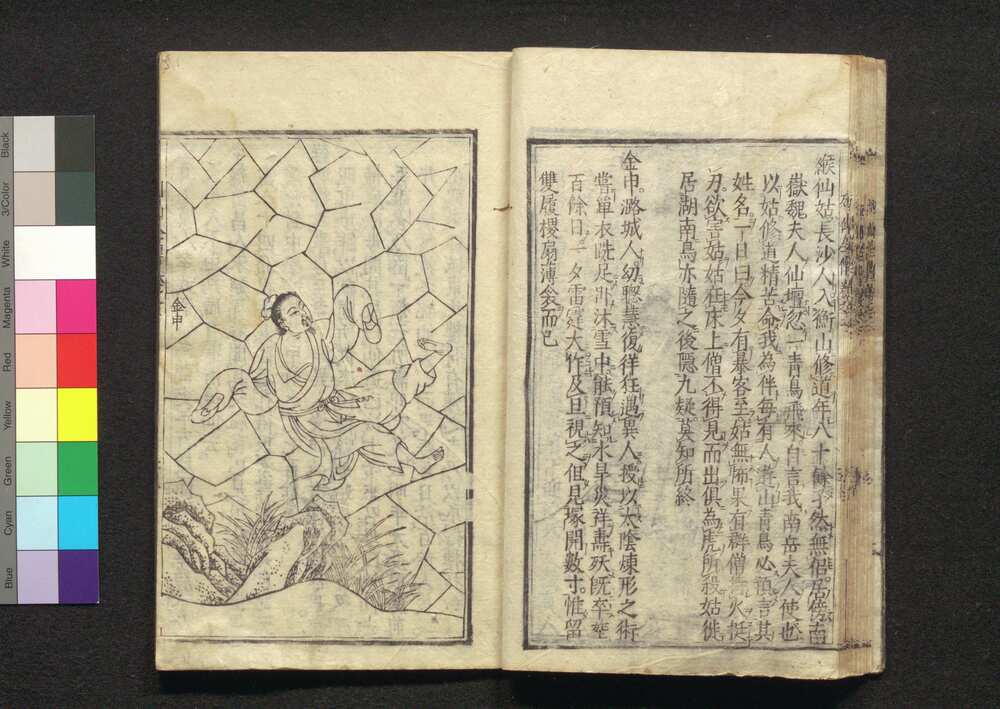 緱仙姑長沙人入衡山修道年八十餘孑然無侶居傍南
嶽魏夫人仙壇忽一青鳥飛來自言我南岳夫人使也
以姑修道精苦命我為伴每有人遊山青鳥必預言其
姓名一日曰今夕有暴客至姑無怖果有群僧火挺
刃欲害姑姑在床上僧不得見而出俱為虎所殺姑徙
居湖南鳥亦隨之後隱九疑莫知所終
金申潞城人幼聰慧復佯狂遇異人授以太陰煉形之術
嘗單衣跣足臥沐雪中能預知水旱災祥壽殀既卒塟
百餘日一夕雷霆大作及旦視之但見塚開數寸惟留
雙履椶扇薄衾而已
金申
Black
3/Color
White
Magenta
Red
Yellow
Green
Cyan
Blue